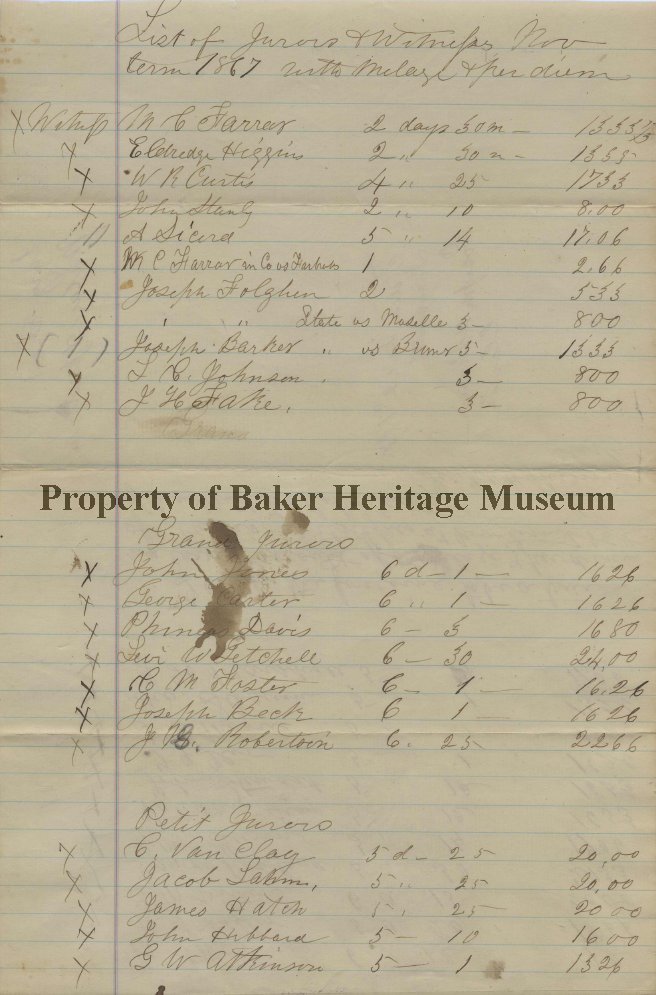 List of Jurors & Witness Nov
term 1867 with Milage & per diem
X Witness M C Farrar 2 days 30 m — 13 33 1/3
X Eldredge Higgins 2 " 30 m — 13 33
X W R Curtis 4 " 25 17 33
X John 2 " 10 8.00
A Sicord 5 " 14 17.06
X M C Farrar in Co vs 1 2.66
X Joseph 2 5 33
X " " State vs 3 — 8 00
X ( 1 ) Joseph Barker " vs 5 — 13 33
X L C. Johnson " 3 — 8 00
X J H Fake. 3 — 8 00
Grand
Property of Baker Heritage Museum
Grand Jurors
X John Jones 6 d — 1 — 16 26
X George Carter 6 " 1 — 16 26
X Phineas Davis 6 — 3 16 80
X Levi W Getchell 6 — 30 24,00
X C M Foster 6 — 1 — 16.26
X Joseph Beck 6 1 — 16 26
X J B. Robertson 6. 25 22 66
Petit Jurors
X C. Van Clay 5 d — 25 20,00
X Jacob 5 " 25 20,00
X James Hatch 5 " 25 20 00
X John Hibbard 5 — 10 16 00
X G W Atkinson 5 — 1 13 26